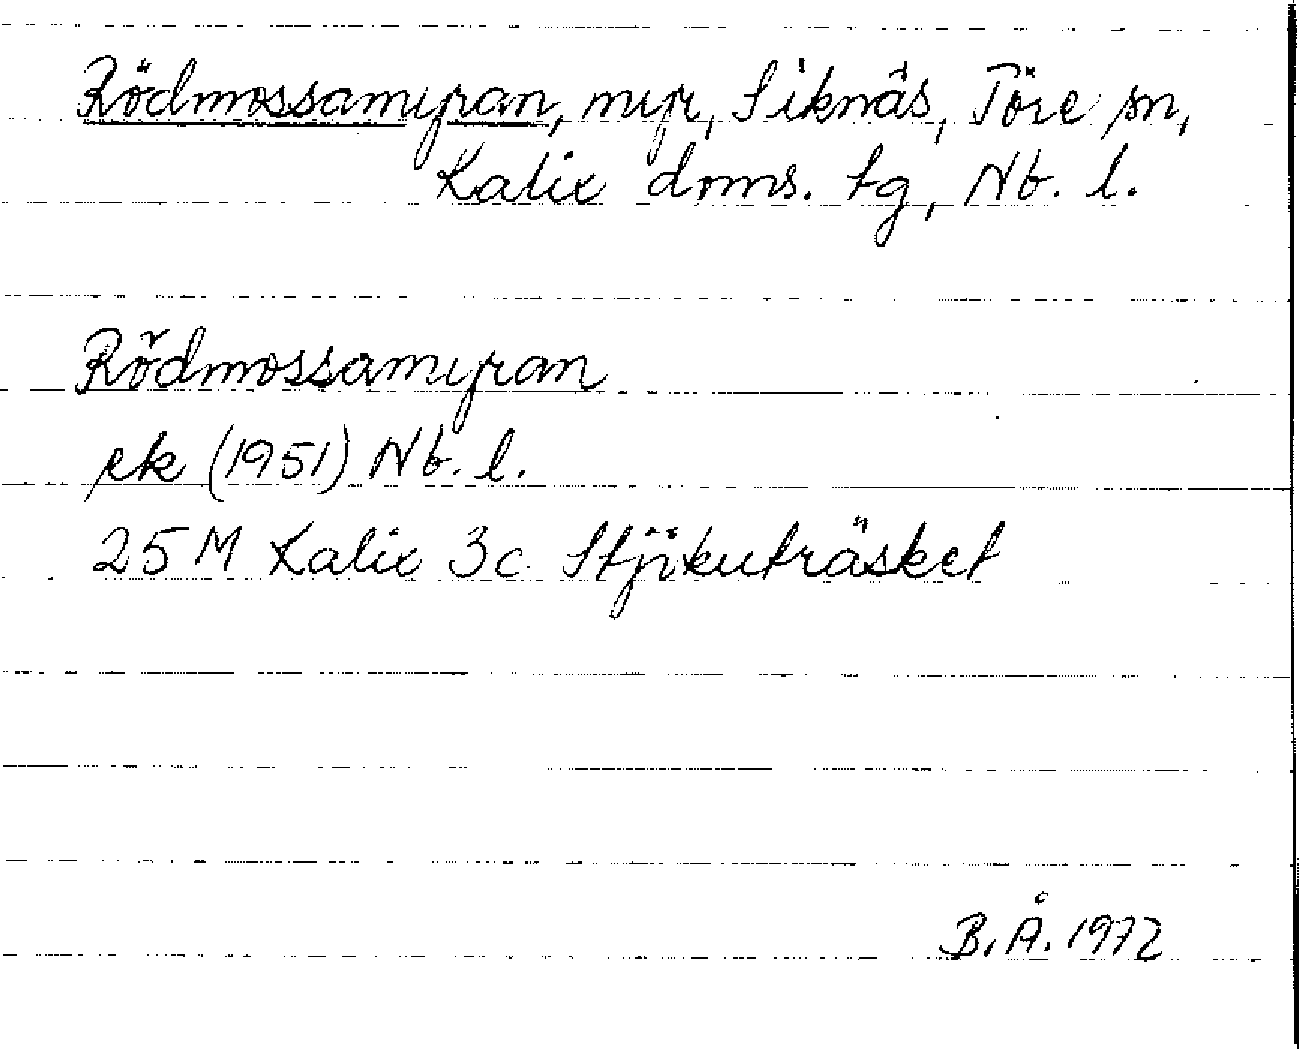 Rödmossamyran, myr, Siknäs, Töre sn,
Kalix doms. tg, Nb. l.
Rödmossamyran
rk (1951) Nb. l.
25 M Kalix 3c Stjikuträsket
B.Å. 1972